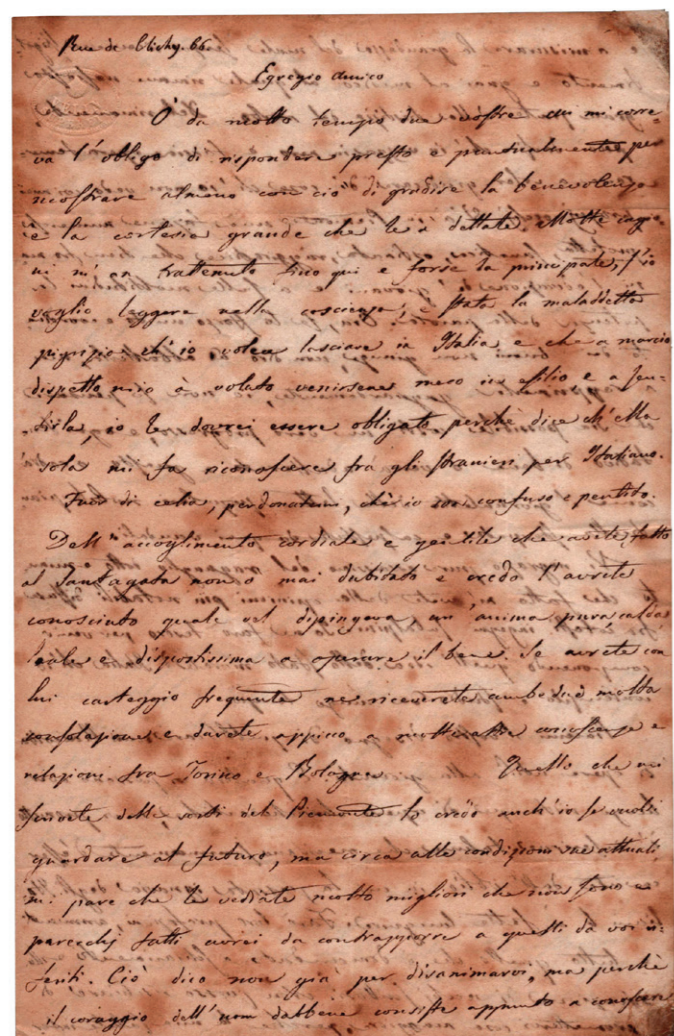 Rue de Clichy. 66.
Egregio Amico
O' da molto tempo due vostre cui mi corre-
va l'obligo di rispondere presto e puntualmente per
mostrare almeno con ciò di gradire la benevolenza
e la cortesia grande che le à dettate. Molte cagio
ni m'an trattenuto sino qui e forse la principale, s'io
voglio leggere nella coscienza, è stata la maladetta
pigrizia ch'io volea lasciare in Italia e che a marcio
dispetto mio à voluto venirsene meco in esilio e a sen-
tirla, io le dovrei essere obligato perchè dice ch'ella
sola mi fa riconoscere frà gli stranieri per Italiano.
Fuor di celia, perdonatemi, ch'io son confuso e pentito.
Dell'accoglimento cordiale e gentile che avete fatto
al Santagata non ò mai dubitato e credo l'avrete
conosciuto quale vel dipingeva, un anima pura calda
leale e dispostissima a operare il bene. Se avrete con
lui carteggio frequente ne riceverete ambedue molta
consolazione e darete appicco a moltissime conoscenze e
relazioni fra Torino e Bologna. Quello che mi
scrivete delle sorti del Piemonte lo credo anch'io se vuolsi
guardare al futuro, ma circa alle condizioni sue attuali
mi pare che le vediate molto migliori che non sono e
parecchj fatti avrei da contrapporre a questi da voi ri-
feriti. Ciò dico non già per disanimarvi, ma perchè
il coraggio dell'uom dabbene consiste appunto a conoscere